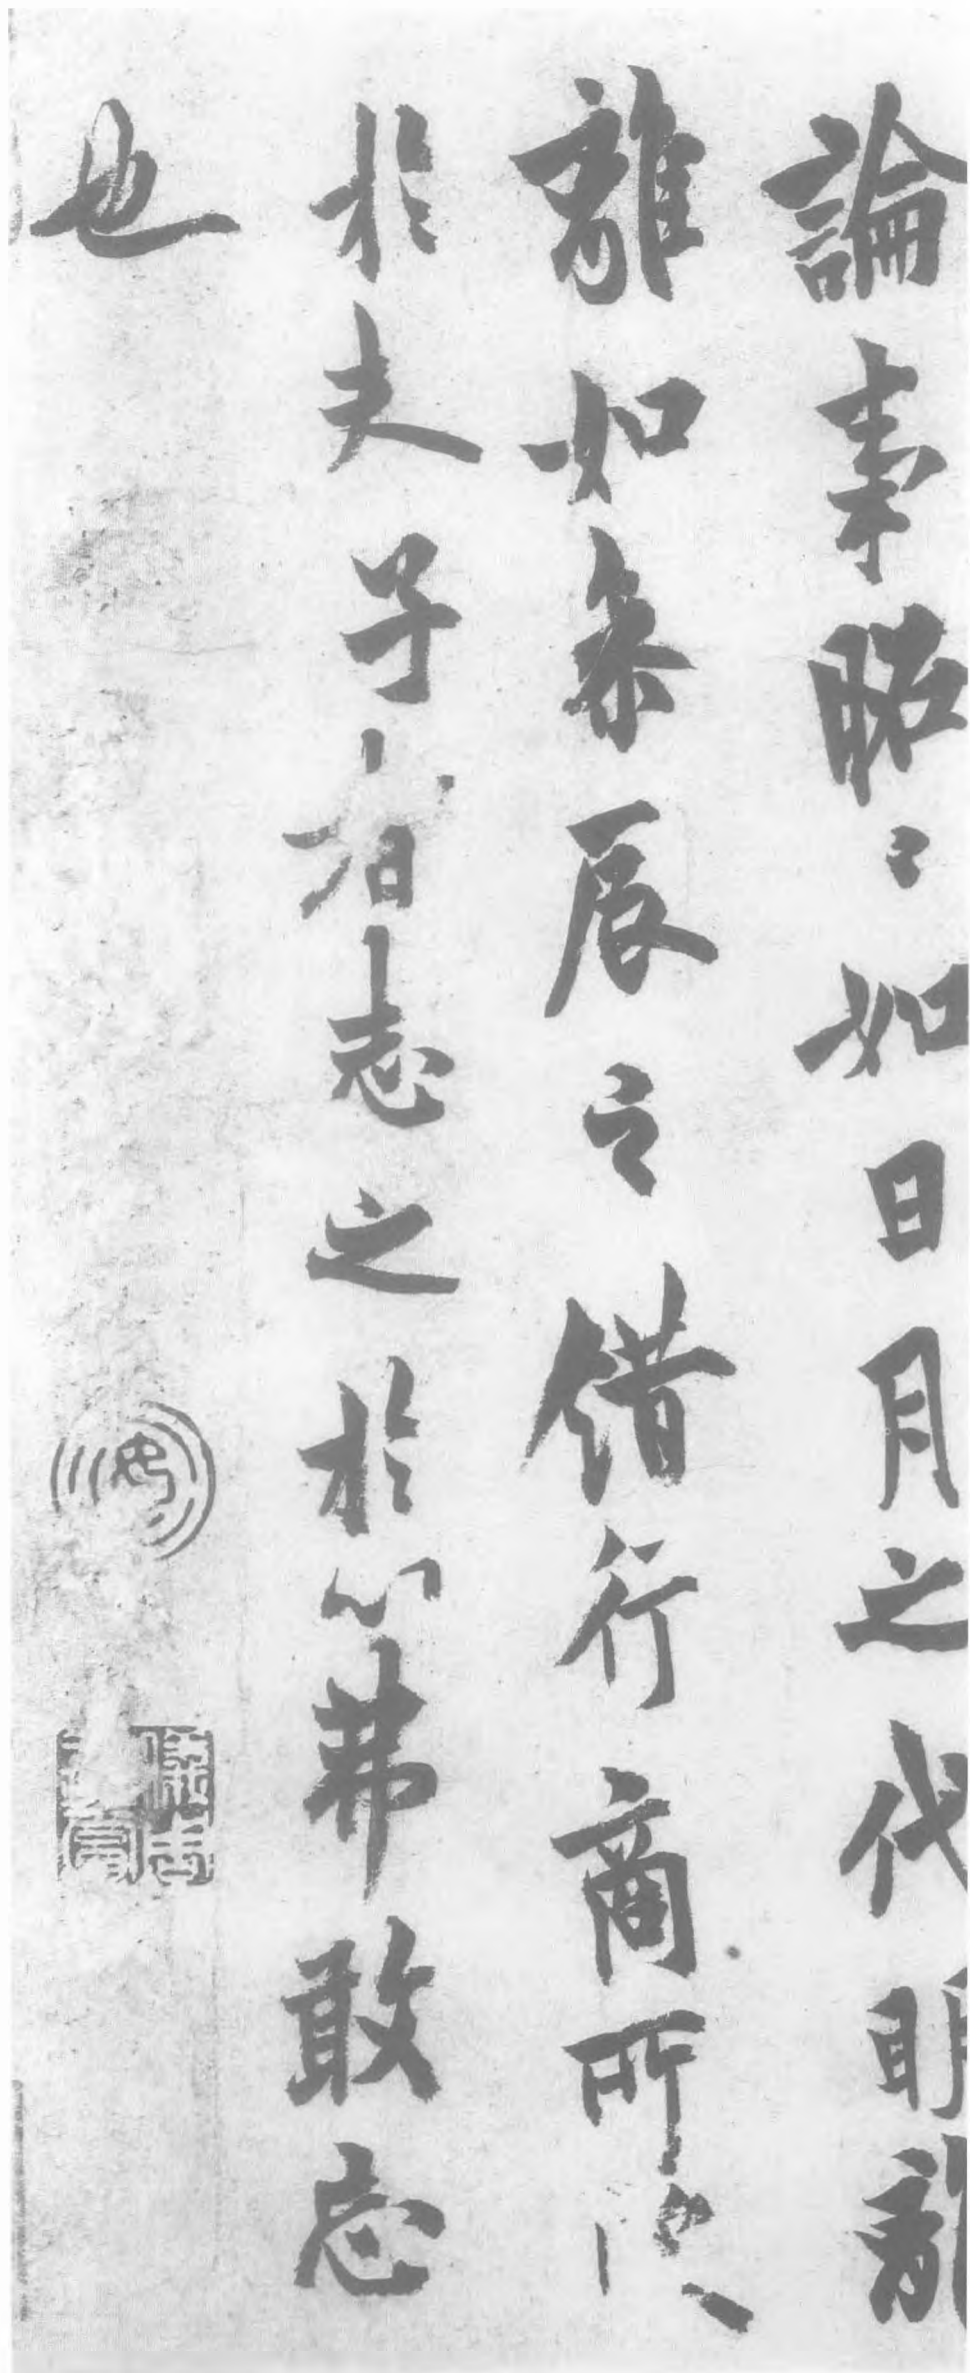 論事昭〻如日月之代明離
離如參辰之錯行商所受
於夫子者志之於心弗敢忘
也